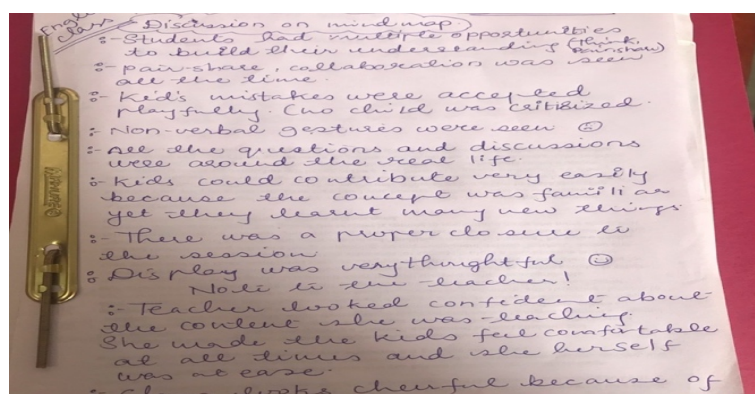 English
Class
Discussion on mind map.
:- Students had multiple opportunities
to build their understanding (Think,
Pair, share)
:- pair-share, collaboration was seen
all the time.
:- Kid's mistakes were accepted
playfully. (no child was critisized.
:- Non-verbal gestures were seen ☺
:- All the questions and discussions
were around the real life.
:- Kids could contribute very easily
because the concept was familiar
yet they learnt many new things.
:- There was a proper closure to
the session
:- Display was very thoughtful ☺
Note to the teacher!
:- Teacher looked confident about
the content she was teaching.
She made the kids feel comfortable
at all times and she herself
was at ease.
cheerful because of